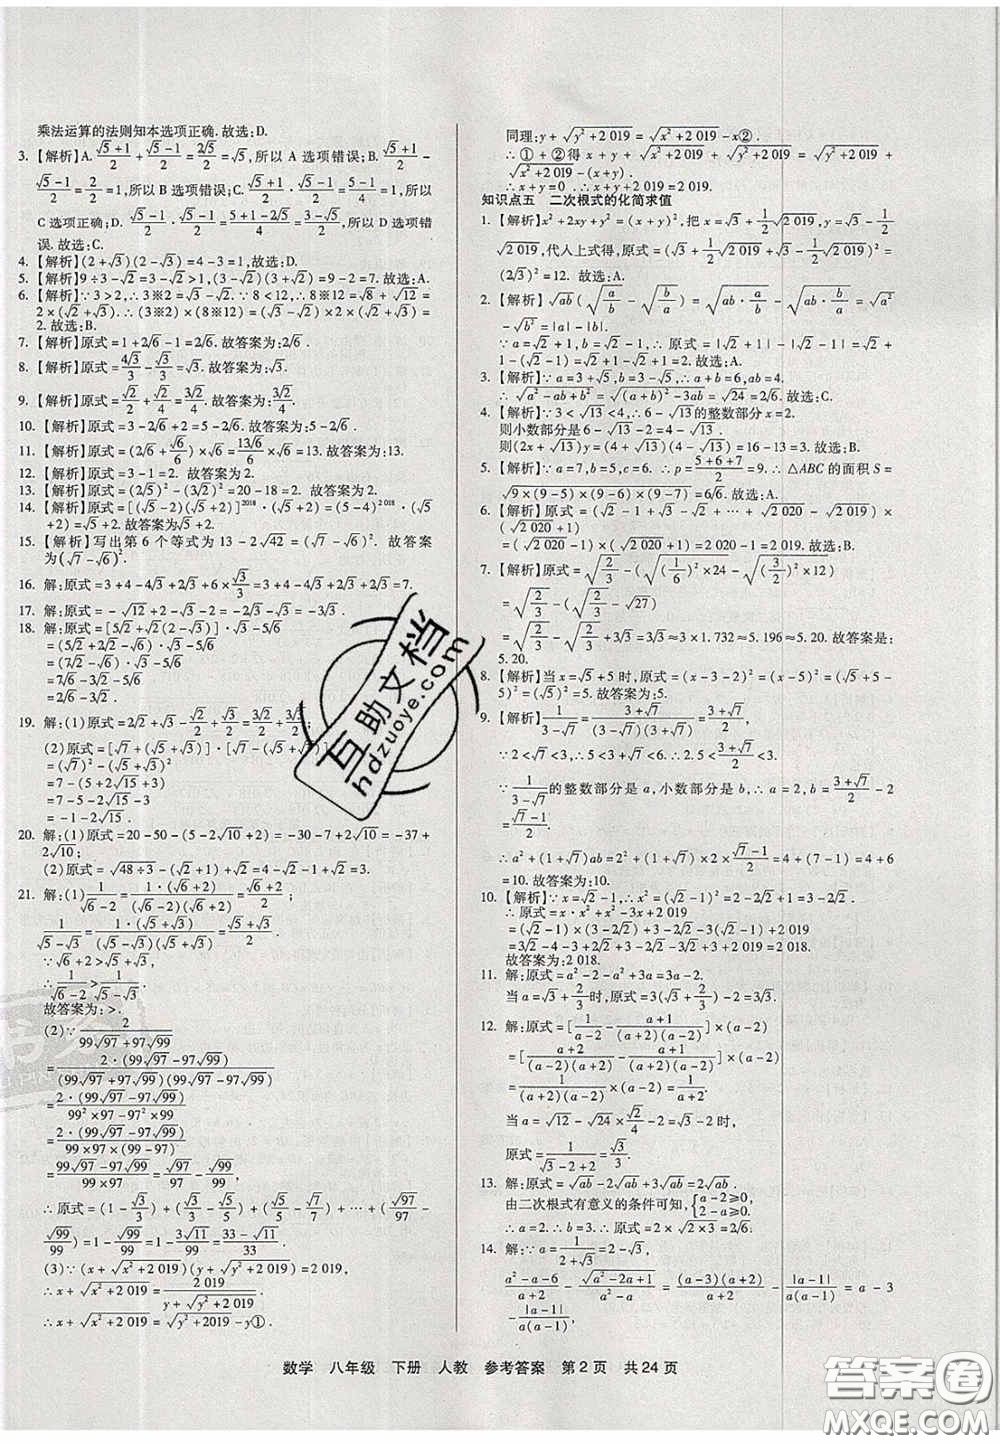 乘法运算的法则知本选项正确.故选:D.
3. 【解析】A. (√5+1)/2+(√5-1)/2=2√5/2=√5,所以 A 选项错误;B. (√5+1)/2-
(√5-1)/2=2/2=1,所以 B 选项错误;C. (√5+1)/2·(√5-1)/2=(5-1)/4=1,所以
C 选项正确;D. (√5-1)/2·(√5-1)/2=(5+1-2√5)/4=(3-√5)/2,所以 D 选项错
误.故选:C.
4. 【解析】(2+√3)(2-√3)=4-3=1,故选:D.
5. 【解析】9÷3-√2=3-√2>1,(3+√2)(3-√2)=9-2=7.故选:A.
6. 【解析】∵3>2,∴3※2=√3-√2.∵8<12,∴8※12=√8+√12=
2×(√2+√3),∴(3※2)×(8※12)=(√3-√2)×2×(√2+√3)=
2.故选:B.
7. 【解析】原式=1+2√6-1=2√6.故答案为:2√6.
8. 【解析】原式=4√3/3-√3/3=√3.故答案为:√3.
9. 【解析】原式=√2/2+√2/4=3√2/4.故答案为:3√2/4.
10. 【解析】原式=3-2√6+2=5-2√6.故答案为:5-2√6.
11. 【解析】原式=(2√6+√6/6)×√6=13√6/6×√6=13.故答案为:13.
12. 【解析】原式=3-1=2.故答案为2.
13. 【解析】原式=(2√5)²-(3√2)²=20-18=2.故答案为2.
14. 【解析】原式=[(√5-2)(√5+2)]²⁰¹⁸·(√5+2)=(5-4)²⁰¹⁸·(√5
+2)=√5+2.故答案为√5+2.
15. 【解析】写出第 6 个等式为 13-2√42=(√7-√6)². 故答案
为(√7-√6)².
16. 解:原式=3+4-4√3+2√3+6×√3/3=3+4-4√3+2√3+2√3=7.
17. 解:原式=-√12+2+√3-2=-2√3+2+√3-2=-√3.
18. 解:原式=[5√2+√2(2-√3)]·√3-5√6
=(5√2+2√2-√6)·√3-5√6
=(7√2-√6)·√3-5√6
=7√6-3√2-5√6
=2√6-3√2.
19. 解:(1)原式=2√2+√3-√2/2+√3/2=3√2/2+3√3/2;
(2)原式=[√7+(√5+√3)]·[√7-(√5+√3)]
=(√7)²-(√5+√3)²
=7-(5+2√15+3)
=7-5-2√15-3
=-1-2√15.
20. 解:(1)原式=20-50-(5-2√10+2)=-30-7+2√10=-37+
2√10;
(2)原式=√48÷3-(√2+1)+√2=4-√2-1+√2=3.
21. 解:(1)1/(√6-2)=1·(√6+2)/(√6-2)(√6+2)=(√6+2)/2;
1/(√5-√3)=1·(√5+√3)/(√5-√3)(√5+√3)=(√5+√3)/2
∵√6+2>√5+√3,
∴1/(√6-2)>1/(√5-√3).
故答案为:>.
(2)∵2/(99√97+97√99)
=2·(99√97-97√99)/(99√97+97√99)(99√97-97√99)
=2·(99√97-97√99)/(99²×97-97²×99)
=2·(99√97-97√99)/99×97×(99-97)
=(99√97-97√99)/(99×97)=√97/97-√99/99,
∴原式=(1-√3/3)+(√3/3-√5/5)+(√5/5-√7/7)+…+(√97/97-
√99/99)=1-√99/99=1-3√11/99=(33-√11)/33.
(3)∵(x+√(x²+2 019))(y+√(y²+2 019))=2 019,
∴x+√(x²+2 019)=2 019/(y+√(y²+2 019)).
∴x+√(x²+2 019)=√(y²+2019)-y①.
同理:y+√(y²+2 019)=√(x²+2 019)-x②.
∴①+②得 x+√(x²+2 019)+y+√(y²+2 019)=√(y²+2 019)-y
+√(x²+2 019)-x.
∴x+y=0.∴x+y+2 019=2 019.
知识点五 二次根式的化简求值
1. 【解析】x²+2xy+y²=(x+y)²,把 x=√3+1/2√2 019,y=√3-1/2
√2 019,代人上式得,原式=(√3+1/2√2 019+√3-1/2√2 019)²=
(2√3)²=12. 故选:A.
2. 【解析】√ab(√(a/b)-√(b/a))=√(ab·a/b)-√(ab·b/a)=√a²
-√b²=|a|-|b|.
∵a=√2+1,b=√2-1,∴原式=|√2+1|-|√2-1|=√2+1
-(√2-1)=√2+1-√2+1=2.故选:A.
3. 【解析】∵a=3+√5,b=3-√5,∴a+b=6,ab=4.
∴√(a²-ab+b²)=√((a+b)²-3ab)=√24=2√6.故选:C.
4. 【解析】∵3<√13<4,∴6-√13的整数部分 x=2.
则小数部分是6-√13-2=4-√13.
则(2x+√13)y=(4+√13)(4-√13)=16-13=3.故选:B.
5. 【解析】∵a=7,b=5,c=6.∴p=(5+6+7)/2=9.∴△ABC的面积 S=
√(9×(9-5)×(9-6)×(9-7))=6√6.故选:A.
6. 【解析】原式=(√2-1+√3-√2+…+√2 020-√2 019)×
(√2 020+1)
=(√2 020-1)×(√2 020+1)=2 020-1=2 019.故选:B.
7. 【解析】原式=√(2/3)-(√((1/6)²×24)-√((3/2)²×12))
=√(2/3)-(√(2/3)-√27)
=√(2/3)-√(2/3)+3√3=3√3≈3×1.732≈5.196≈5.20.故答案是:
5.20.
8. 【解析】当 x=√5+5 时,原式=(x-3-2)²=(x-5)²=(√5+5-
5)²=(√5)²=5.故答案为:5.
9. 【解析】1/(3-√7)=(3+√7)/(3-√7)(3+√7)=(3+√7)/2,
∵2<√7<3,∴5<3+√7<6.∴2.5<(3+√7)/2<3.
∵1/(3-√7)的整数部分是 a,小数部分是 b,∴a=2,b=(3+√7)/2-2=
(√7-1)/2.
∴a²+(1+√7)ab=2²+(1+√7)×2×(√7-1)/2=4+6
=10.故答案为:10.
10. 【解析】∵x=√2-1,∴x²=(√2-1)²=2-2√2+1=3-2√2
∴原式=x·x²+x²+3x+2 019
=(√2-1)×(3-2√2)+3-2√2+3(√2-1)+2 019
=3√2-4-3+2√2+3-2√2+3√2-3+2 019
故答案为:2 018.
11. 解:原式=a²-2-a²+3a=3a-2.
当 a=√3+2/3时,原式=3(√3+2/3)-2=3√3.
12. 解:原式=[1/(a-2)-(a+1)/(a+2)(a-2)]×(a-2)
=[(a+2)/(a-2)(a+2)-(a+1)/(a+2)(a-2)]×(a-2)
=1/(a+2)(a-2)×(a-2)=1/(a+2).
当 a=√12-√24×√2/4-2=√3-2时,
原式=1/(√3-2+2)=1/√3=√3/3.
13. 解:原式=√ab-2√ab+3√ab=2√ab.
由二次根式有意义的条件可知,{a-2≥0, 2-a≥0,
∴a=2.∴b=3.∴原式=2×√(2×3)=2√6.
14. 解:∵a=1/(2+√3)=2-√3,
(a²-a-6)/(a+2)-√(a²-2a+1)/(a²-a)=(a-3)(a+2)/(a+2)-|a-1|/a(a-1)=a-3
-|a-1|/a(a-1).
数学 八年级 下册 人教 参考答案 第2页 共24页
互助文档
hdzuoye.com
答案圈
MXQE.COM